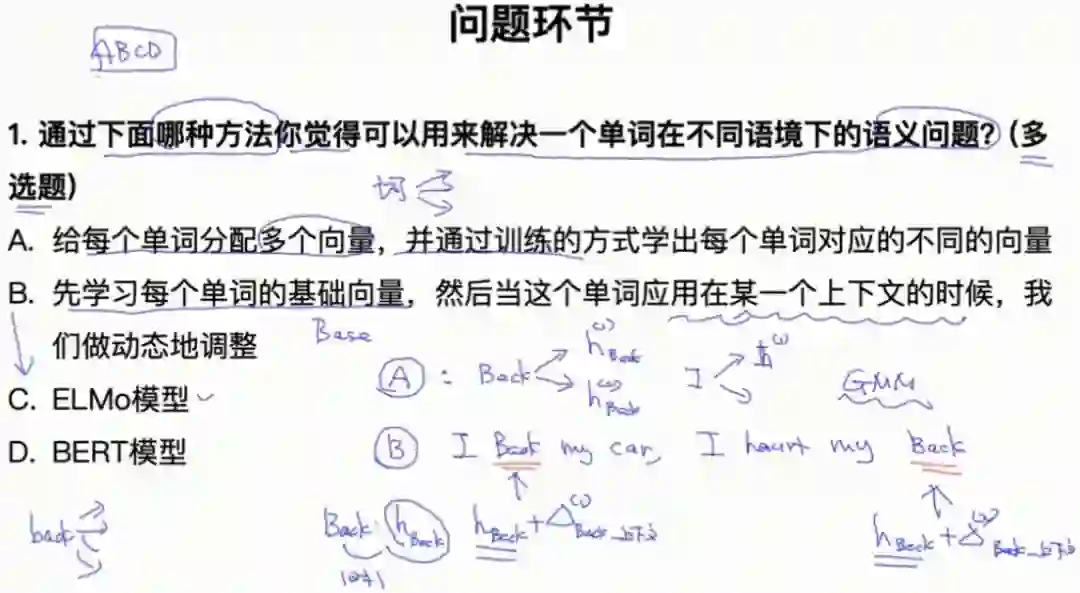 问题环节
ABCD
1. 通过下面哪种方法你觉得可以用来解决一个单词在不同语境下的语义问题?（多
选题）
词
A. 给每个单词分配多个向量，并通过训练的方式学出每个单词对应的不同的向量
B. 先学习每个单词的基础向量，然后当这个单词应用在某一个上下文的时候，我
们做动态地调整
Base
C. ELMo模型
A : Back h Back h Back I h GMM
D. BERT模型
B I Back my car, I haurt my Back
back
Back h Back h Back + Δ Back_上下文 h Back + Δ Back_上下文